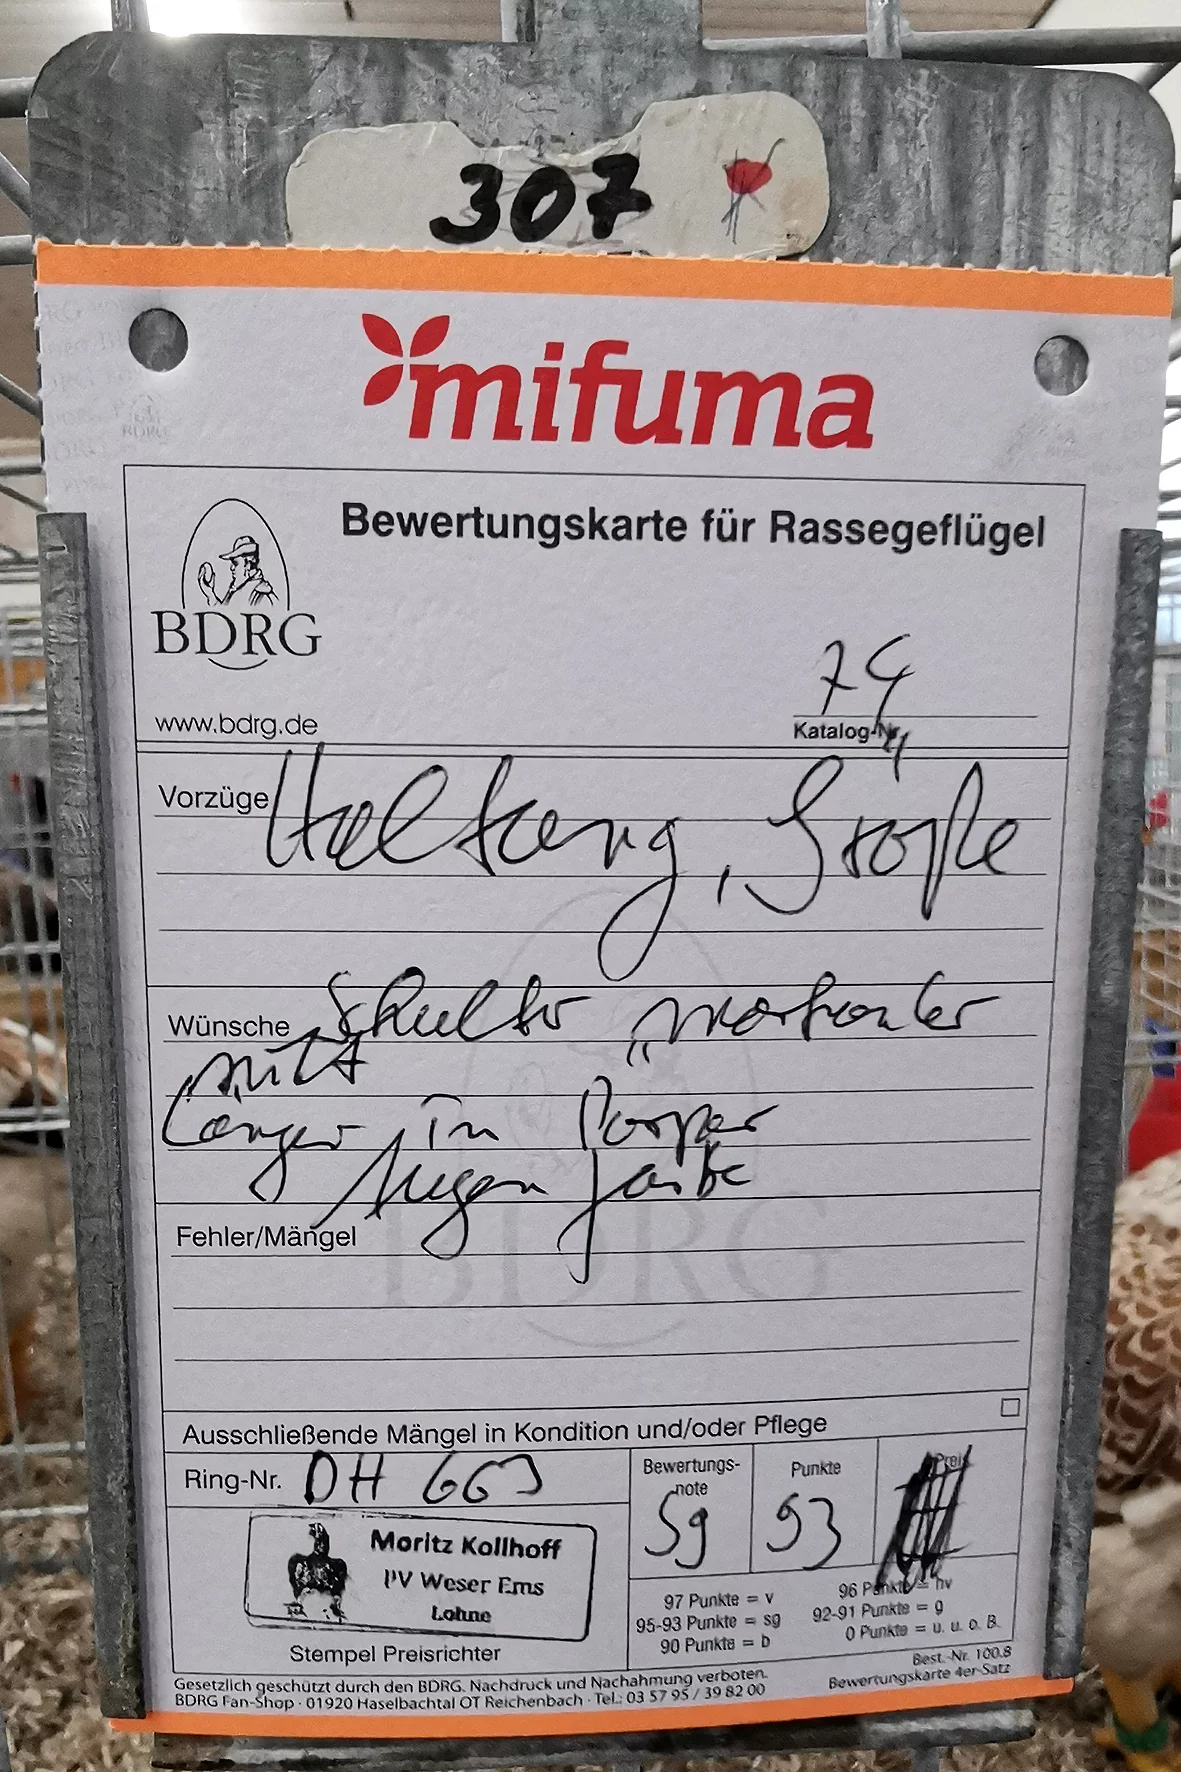 307
mifuma
Bewertungskarte für Rassegeflügel
BDRG
www.bdrg.de
74
Katalog-Nr.
Vorzüge Haltung, Größe
Wünsche Schulter markanter
mitt
Länger im Körper
Augenfarbe
Fehler/Mängel
Ausschließende Mängel in Kondition und/oder Pflege
Ring-Nr. DH 663
Bewertungs-
note
Sg
Punkte
93
Preis
Moritz Kollhoff
PV Weser Ems
Lohne
Stempel Preisrichter
97 Punkte = v
95-93 Punkte = sg
90 Punkte = b
96 Punkte = hv
92-91 Punkte = g
0 Punkte = u. u. o. B.
Gesetzlich geschützt durch den BDRG. Nachdruck und Nachahmung verboten.
BDRG Fan-Shop · 01920 Haselbachtal OT Reichenbach · Tel.: 03 57 95 / 39 82 00
Best.-Nr. 100.8
Bewertungskarte 4er-Satz